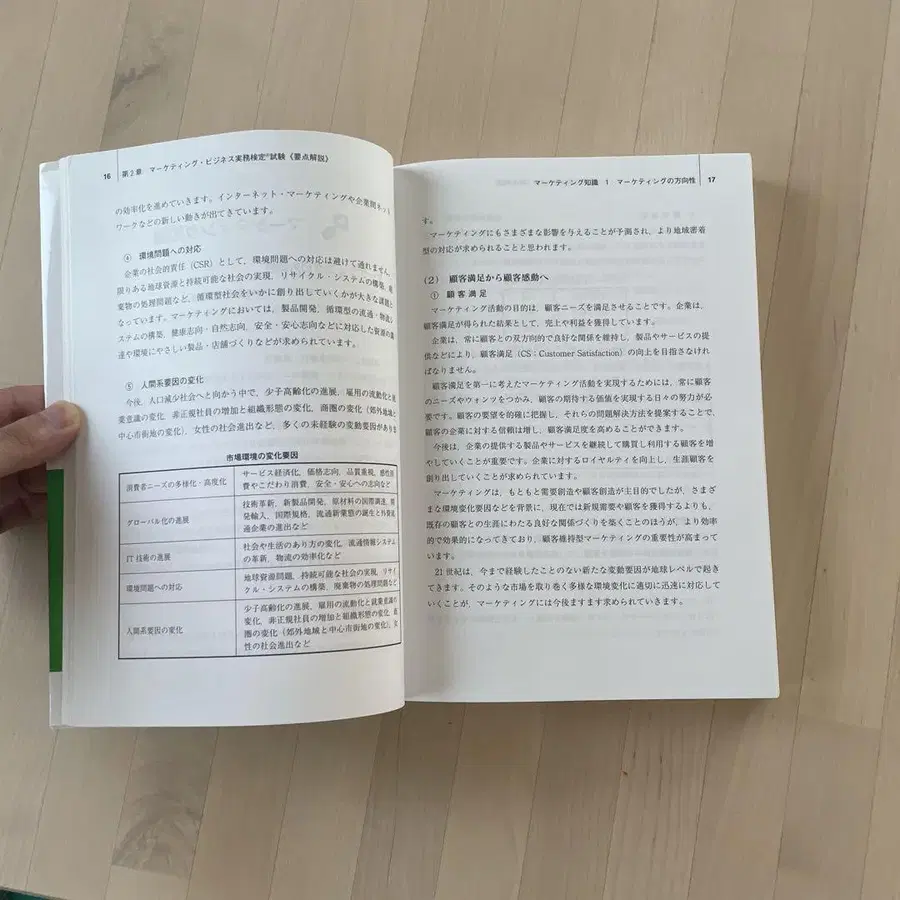 16 第2章 マーケティング・ビジネス実務検定®試験《要点解説》
の効率化を進めていきます。インターネット・マーケティングや企業間ネット
ワークなどの新しい動きが出てきています。
④ 環境問題への対応
企業の社会的責任（CSR）として、環境問題への対応は避けて通れません。
限りある地球資源と持続可能な社会の実現、リサイクル・システムの構築、廃
棄物の処理問題など、循環型社会をいかに創り出していくかが大きな課題と
なっています。マーケティングにおいては、製品開発、循環型の流通・物流シ
ステムの構築、健康志向・自然志向、安全・安心志向などに対応した資源の調
達や環境にやさしい製品・店舗づくりなどが求められています。
⑤ 人間系要因の変化
今後、人口減少社会へと向かう中で、少子高齢化の進展、雇用の流動化と就
業意識の変化、非正規社員の増加と組織形態の変化、商圏の変化（郊外地域と
中心市街地の変化）、女性の社会進出など、多くの未経験の変動要因がありま
市場環境の変化要因
消費者ニーズの多様化・高度化
サービス経済化、価格志向、品質重視、感性消
費やこだわり消費、安全・安心への志向など
グローバル化の進展
技術革新、新製品開発、原材料の国際調達、開
発輸入、国際規格、流通新業態の誕生と外資流
通企業の進出など
IT技術の進展
社会や生活のあり方の変化、流通情報システム
の革新、物流の効率化など
環境問題への対応
地球資源問題、持続可能な社会の実現、リサイ
クル・システムの構築、廃棄物の処理問題など
人間系要因の変化
少子高齢化の進展、雇用の流動化と就業意識の
変化、非正規社員の増加と組織形態の変化、商
圏の変化（郊外地域と中心市街地の変化）、女
性の社会進出など
マーケティング知識 1 マーケティングの方向性 17
す。
マーケティングにもさまざまな影響を与えることが予測され、より地域密着
型の対応が求められることと思われます。
（2） 顧客満足から顧客感動へ
① 顧客満足
マーケティング活動の目的は、顧客ニーズを満足させることです。企業は、
顧客満足が得られた結果として、売上や利益を獲得しています。
企業は、常に顧客との双方向的で良好な関係を維持し、製品やサービスの提
供などにより、顧客満足（CS：Customer Satisfaction）の向上を目指さなけれ
ばなりません。
顧客満足を第一に考えたマーケティング活動を実現するためには、常に顧客
のニーズやウォンツをつかみ、顧客の期待する価値を実現する日々の努力が必
要です。顧客の要望を的確に把握し、それらの問題解決方法を提案することで、
顧客の企業に対する信頼は増し、顧客満足度を高めることができます。
今後は、企業の提供する製品やサービスを継続して購買し利用する顧客を増
やしていくことが重要です。企業に対するロイヤルティを向上し、生涯顧客を
創り出していくことが求められます。
マーケティングは、もともと需要創造や顧客創造が主目的でしたが、さまざ
まな環境変化要因などを背景に、現在では新規需要や顧客を獲得するよりも、
既存の顧客との生涯にわたる良好な関係づくりを築くことのほうが、より効率
的で効果的になってきており、顧客維持型マーケティングの重要性が高まって
います。
21世紀は、今まで経験したことのない新たな変動要因が地球レベルで起き
てきます。そのような市場を取り巻く多様な環境変化に適切に迅速に対応して
いくことが、マーケティングには今後ますます求められていきます。